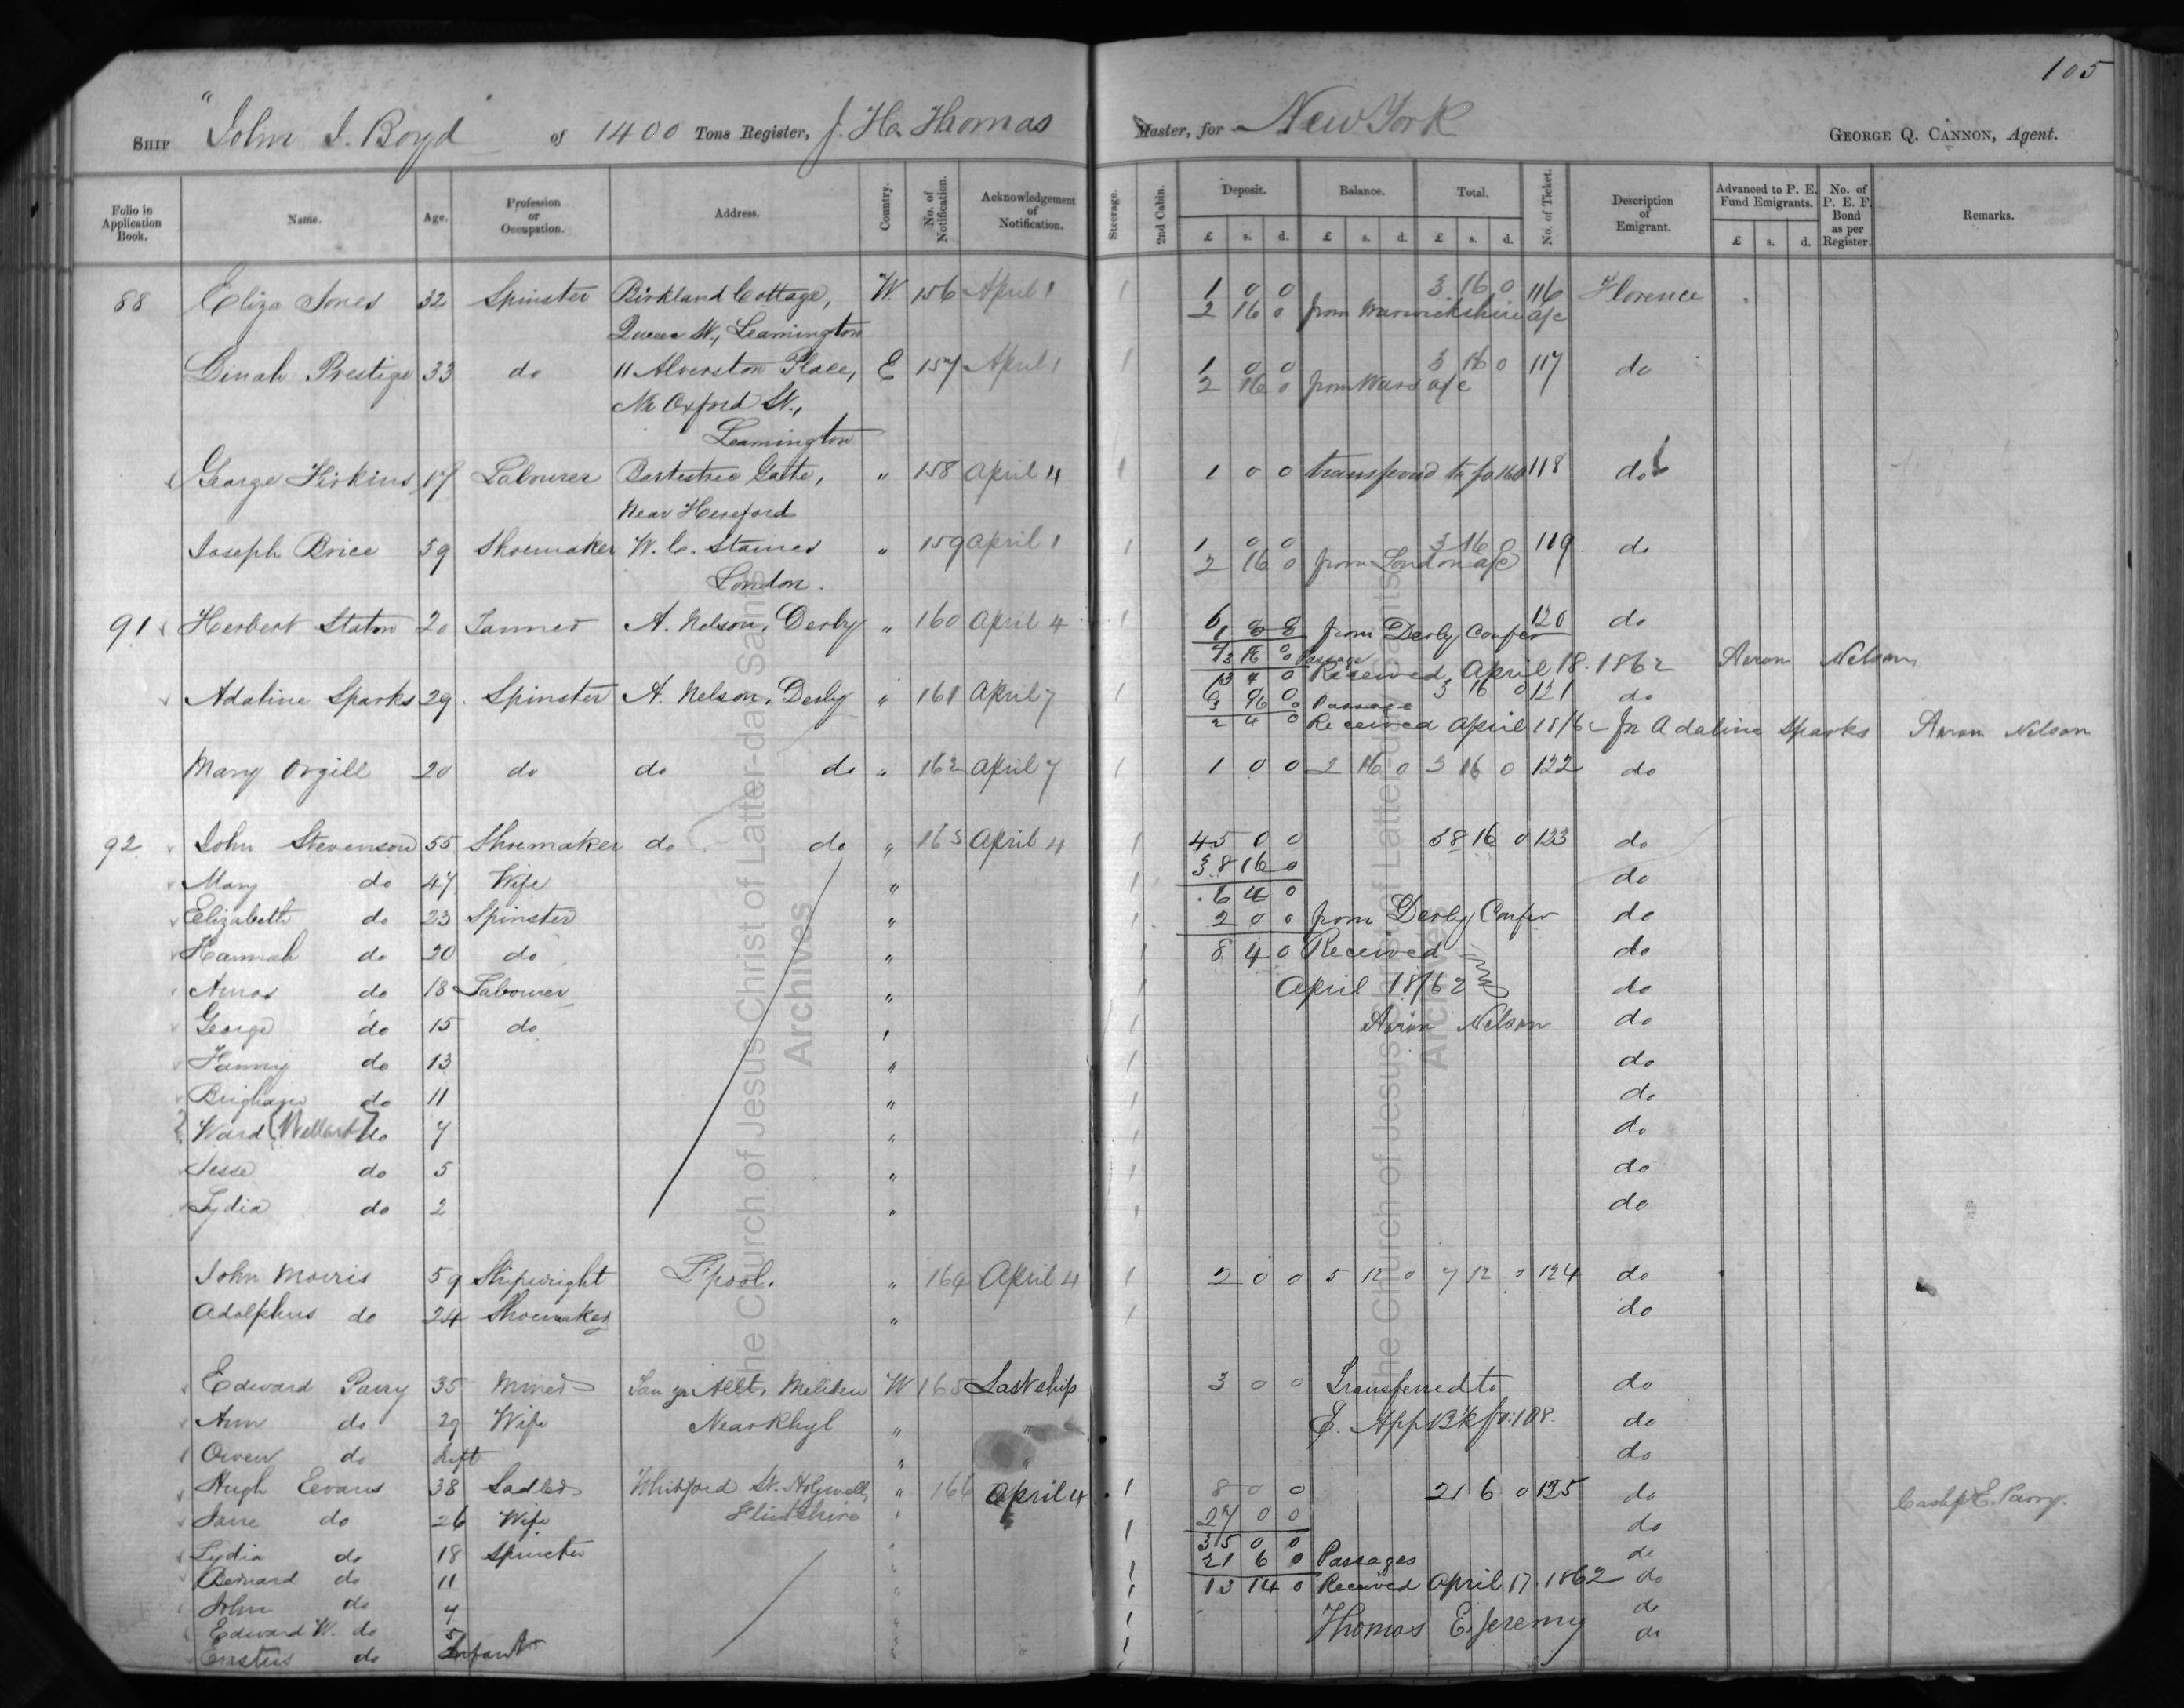 105
SHIP "John J. Boyd of 1400 Tons Register, J. H. Thomas Master, for New York GEORGE Q. CANNON, Agent.
Folio in Application Book. Name. Age. Profession or Occupation. Address. Country. No. of Notification. Acknowledgement of Notification. Steerage. 2nd Cabin. Deposit. Balance. Total. No. of Ticket. Description of Emigrant. Advanced to P. E. Fund Emigrants. No. of P. E. F. Bond as per Register. Remarks.
£ s. d. £ s. d. £ s. d. £ s. d.
88 Eliza Jones 32 Spinster Birkland Cottage, W 156 April 1 1 1 0 0 3 16 0 116 Florence
Queen St., Leamington 2 16 0 from Warwickshire a/c
Dinah Prestige 33 do 11 Alverston Place, E 157 April 1 1 1 0 0 3 16 0 117 do
Nr Oxford St., 2 16 0 from Wars a/c
Leamington
George Hirkins 17 Labourer Bartestree Gate, " 158 April 4 1 1 0 0 118 do
Near Hereford
Joseph Brice 59 Shoemaker W. C. Staines " 159 April 1 1 1 0 0 3 16 0 119 do
London. 2 16 0 from London a/c
91 Herbert Staton 20 Tanner A. Nelson, Derby " 160 April 4 1 6 120 do
1 8 8 from Derby Confer
3 16 0 Passage
Received, April 18. 1862 Aaron Nelson
Adaline Sparks 29 Spinster A. Nelson, Derby " 161 April 7 1 6 0 0 3 16 0 121 do
3 16 0 Passage
2 4 0 Received April 18/62 for Adaline Sparks Aaron Nelson
Mary Orgill 20 do do do " 162 April 7 1 1 0 0 2 16 0 3 16 0 122 do
92 John Stevenson 55 Shoemaker do do " 163 April 4 1 45 0 0 38 16 0 123 do
38 16 0
Mary do 47 Wife " 1 do
6 4 0
Elizabeth do 23 Spinster " 1 2 0 0 from Derby Confer do
Hannah do 20 do " 1 8 4 0 Received do
Amos do 18 Labourer " 1 April 18/62 do
George do 15 do " 1 Aaron Nelson do
Fanny do 13 " 1 do
Brigham do 11 " 1 do
Ward (Willard) do 7 " 1 do
Jesse do 5 " 1 do
Lydia do 2 " 1 do
John Morris 59 Shipwright L'pool. " 164 April 4 1 2 0 0 5 12 0 7 12 0 124 do
Adolphus do 24 Shoemaker " 1 do
Edward Parry 35 Miner Tan yr Allt, Meliden W 165 Last ship 3 0 0 Transferred to do
Ann do 29 Wife Near Rhyl " " E. App B'k fo. 108. do
Owen do Inft " " do
Hugh Evans 38 Sadler Whitford St. Holywell, " 166 April 4 1 8 0 0 21 6 0 125 do Cash p E. Parry.
Jane do 26 Wife Flintshire " 1 27 0 0 do
35 0 0
Lydia do 18 Spinster " 1 21 6 0 Passages do
Bernard do 11 " 1 13 14 0 Received April 17. 1862 do
John do 7 " 1 do
Edward W. do 5 " 1 Thomas E. Jeremy do
Erastus do Infant " 1
The Church of Jesus Christ of Latter-day Saints
Archives
The Church of Jesus Christ of Latter-day Saints
Archives